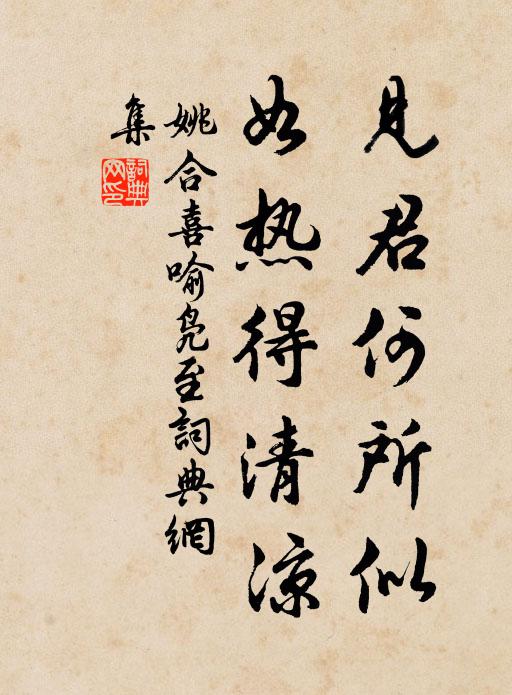 見君何所似
如热得清涼
姚合喜喻凫至詞典網
集
詞典网印